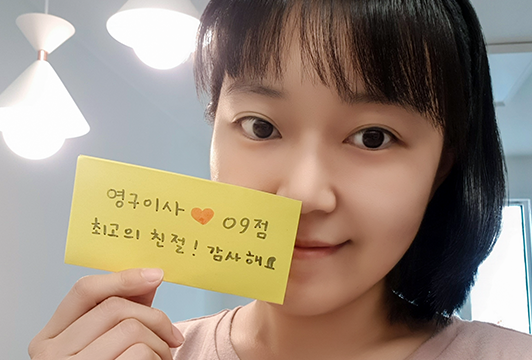 영구이사 ♥ 09점
최고의 친절! 감사해요